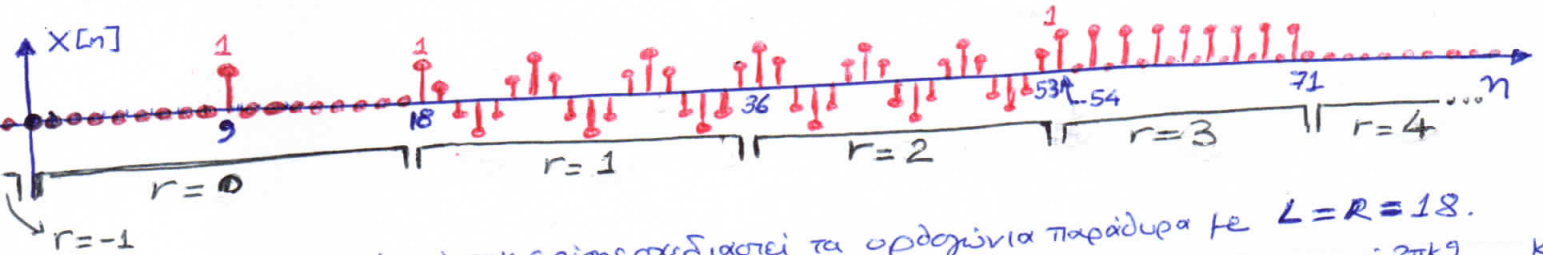 x[n]
1 1 1
9 18 36 53 54 71 n
r=0 r=1 r=2 r=3 r=4 ...
r=-1
τα ορθογώνια παράθυρα με L=R=18.